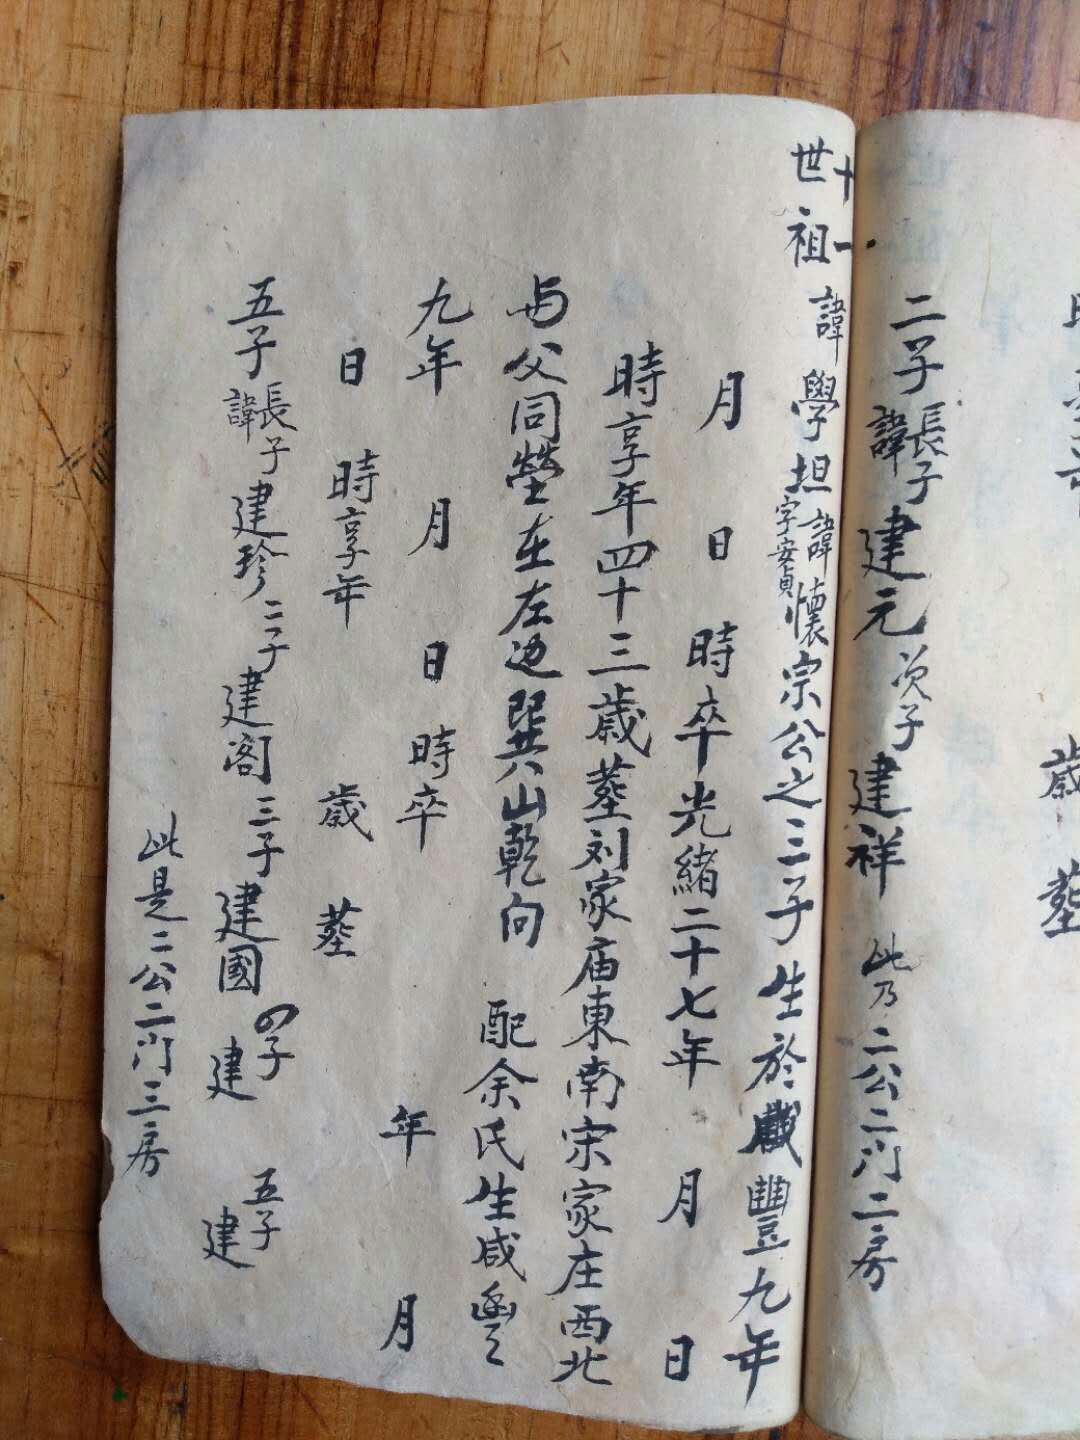 歲 塟
二子長子諱建元次子建祥 此乃二公二门二房
十一世祖 諱學坦字安貞諱懷宗公之三子生於咸豐九年
月 日 時卒光緒二十七年 月 日
時享年四十三歲塟刘家届東南宋家庄西北
与父同塋在左边巽山乾向 配余氏生咸豐
九年 月 日 時卒 年 月
日 時享年 歲 塟
五子長子諱建珍二子建阁三子建國四子建 五子建
此是二公二门三房